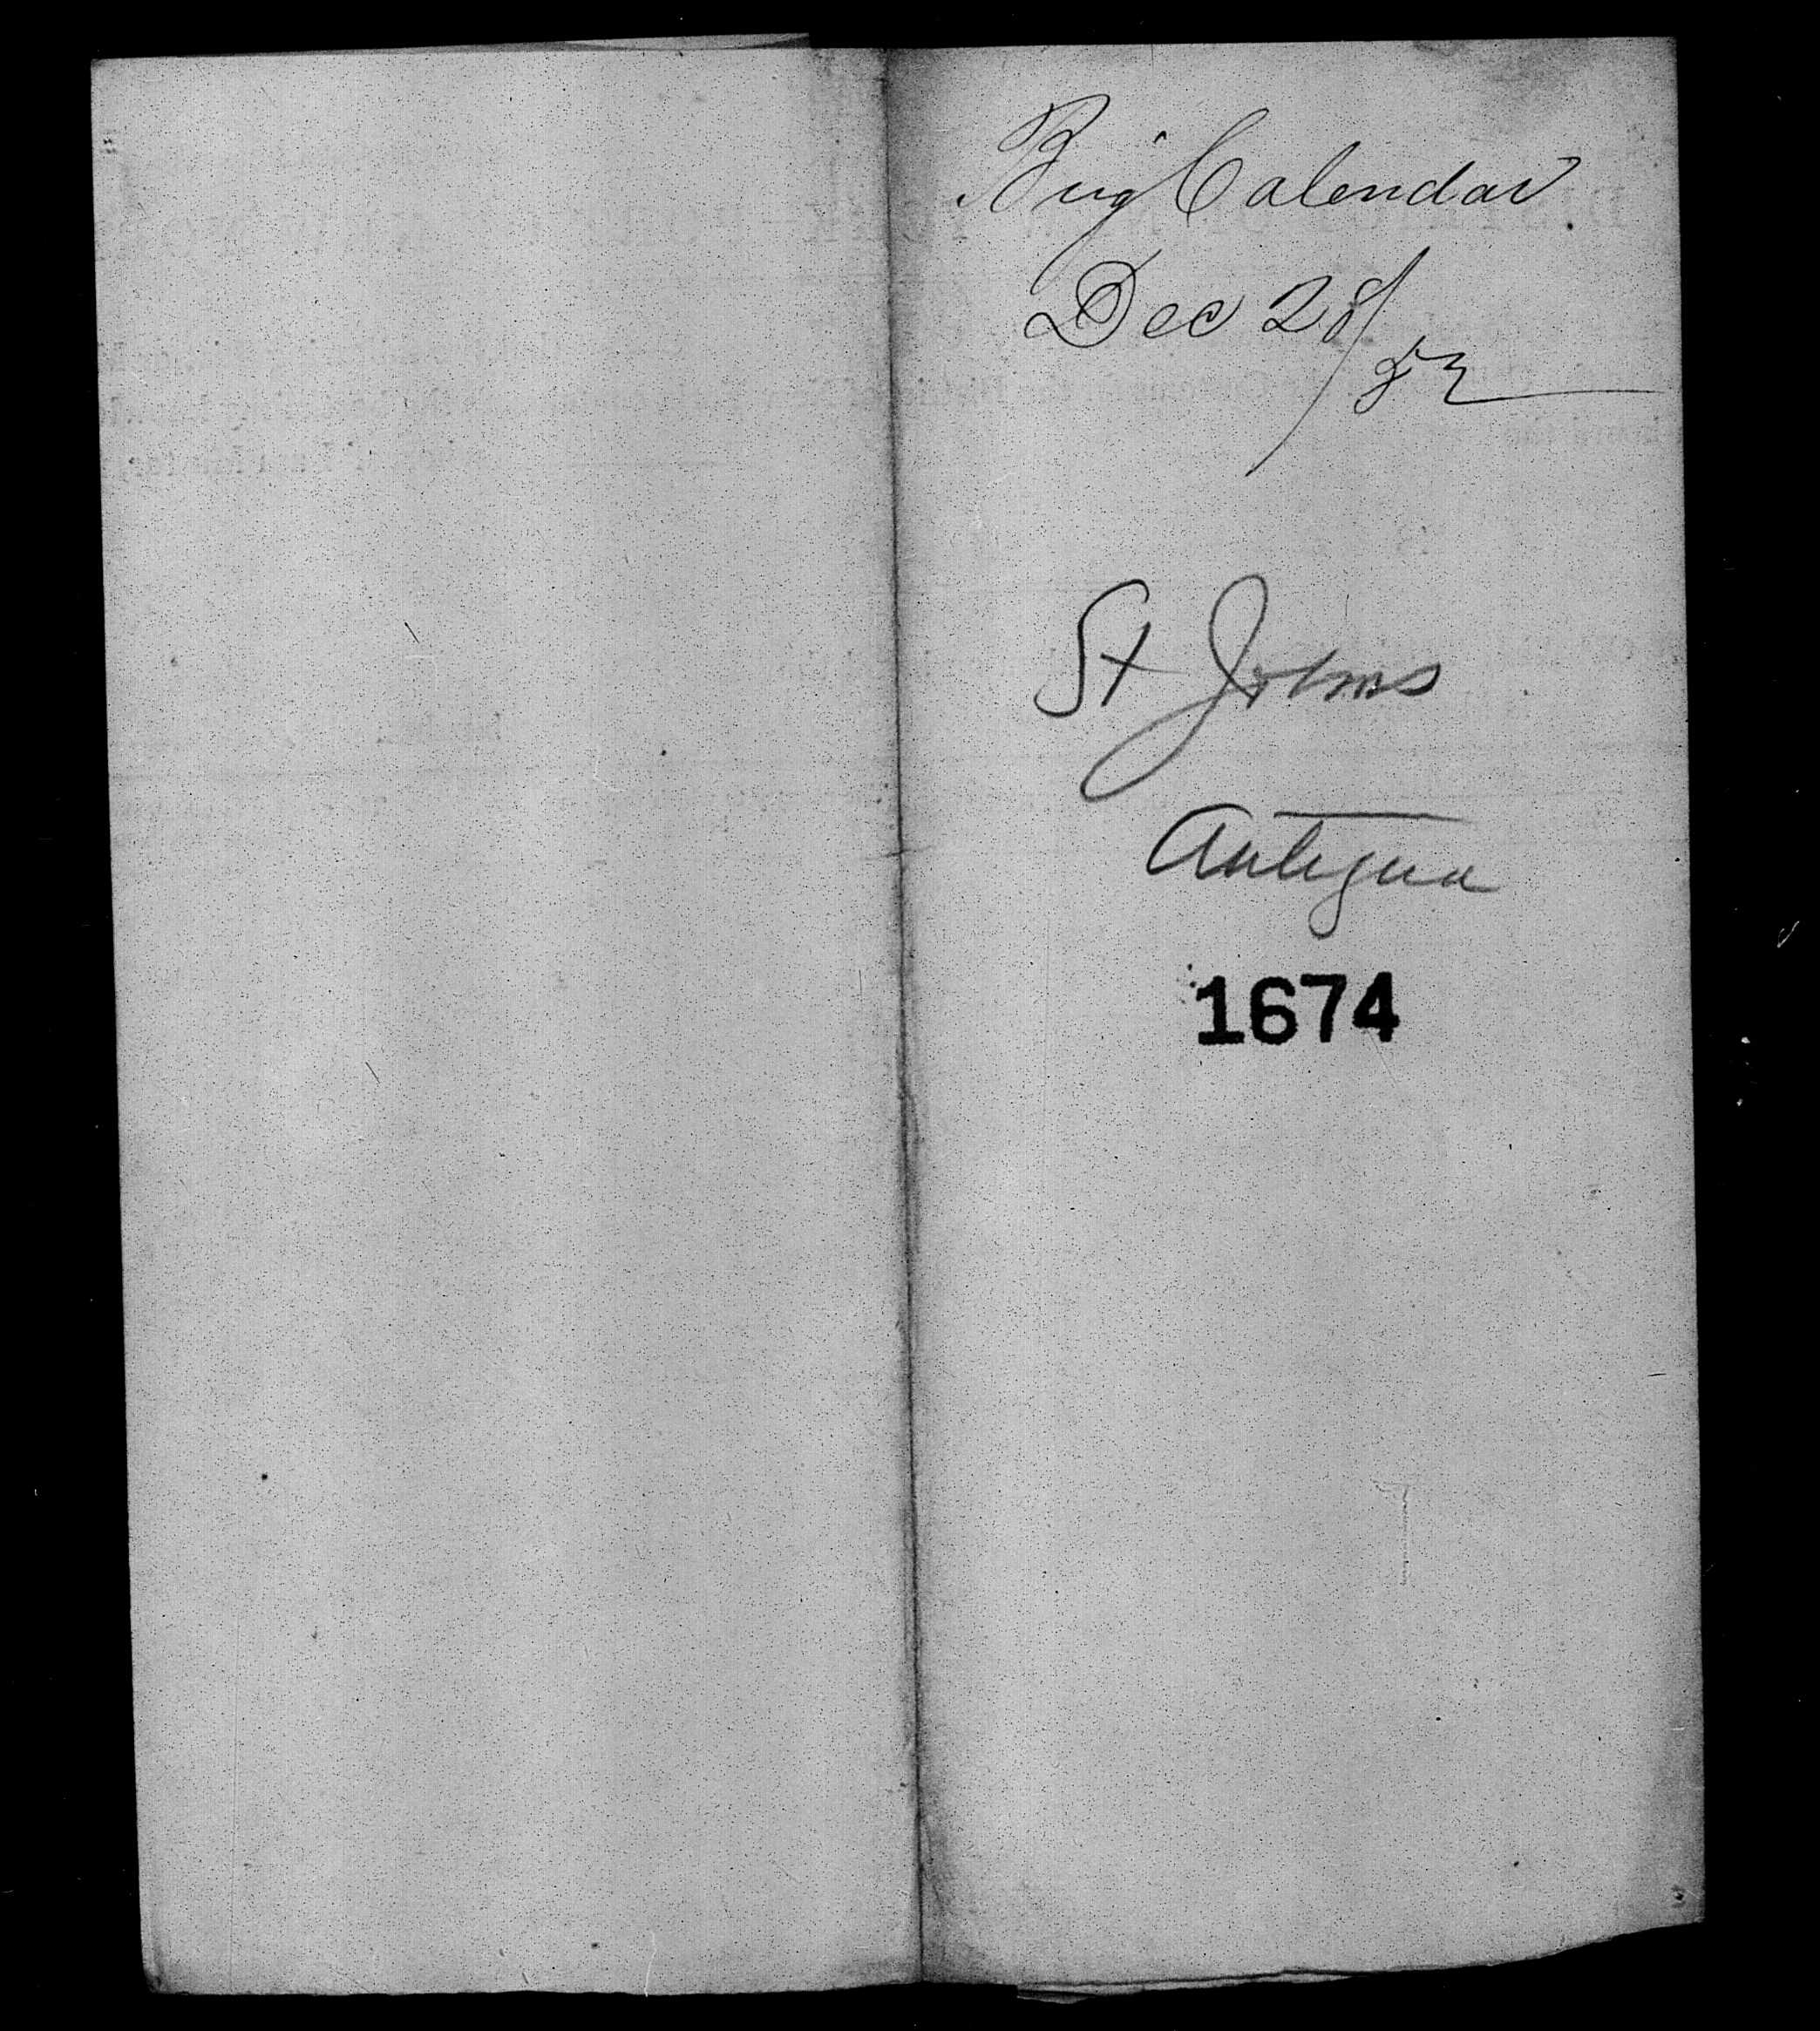 Brig Calendar
Dec 28/
52
St Johns
Antigua
1674